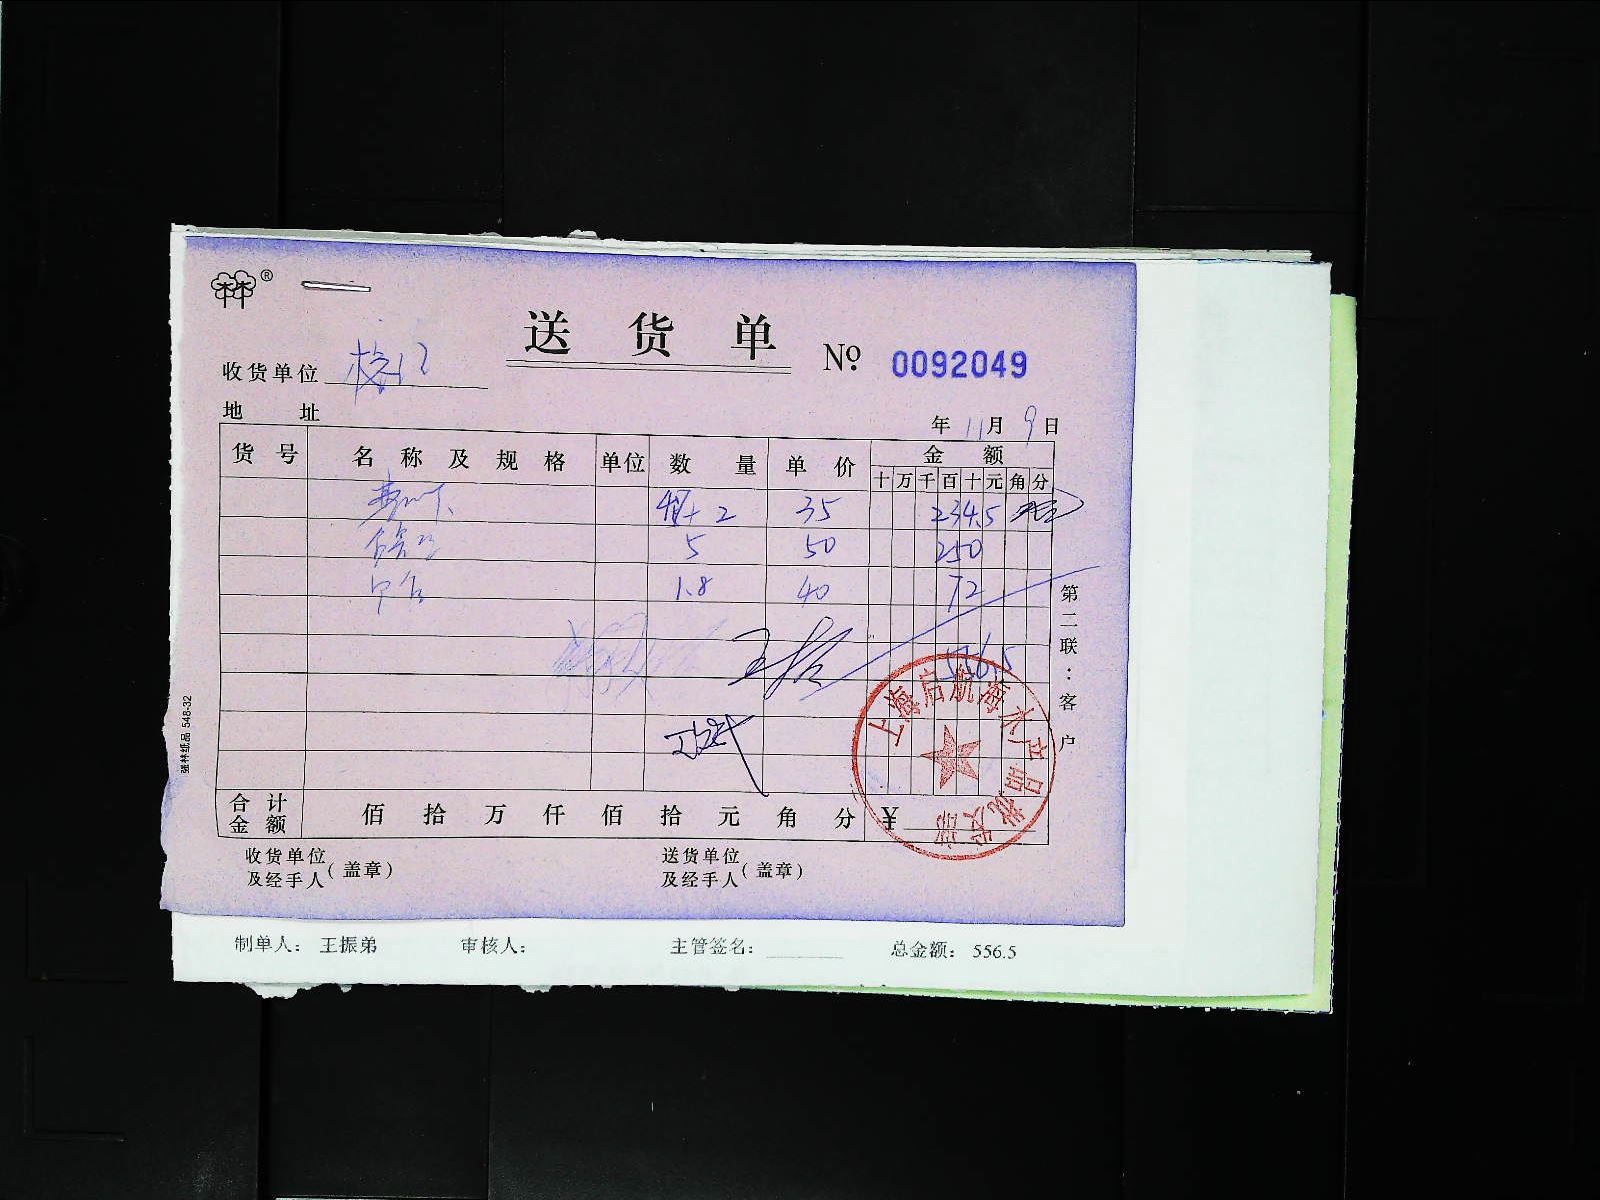 送货单
№ 0092049
收货单位
地 址
年 11月 9日
货号 名称及规格 单位 数量 单价 金额
十万千百十元角分
35 234.5
5 50 250
1.8 40 72
556.5
上海启航海水产品批发部
合计金额 佰 拾 万 仟 佰 拾 元 角 分 ¥
收货单位及经手人(盖章) 送货单位及经手人(盖章)
第二联:客户
强林纸品 548-32
制单人: 王振弟 审核人: 主管签名: 总金额: 556.5